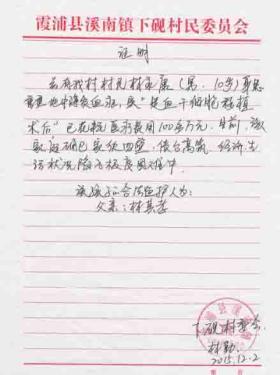 霞浦县溪南镇下砚村民委员会
证明
兹有我村村民林承康(男,10岁)身患
重型地中海贫血症,
术后”已花费医疗费用100多万元,目前,该
家庭确已家徒四壁,债台高筑,经济生
活状况陷入极度困难中。
该孩子合法监护人为:
父亲:林其孝
下砚村委会
林勤
2015.12.2